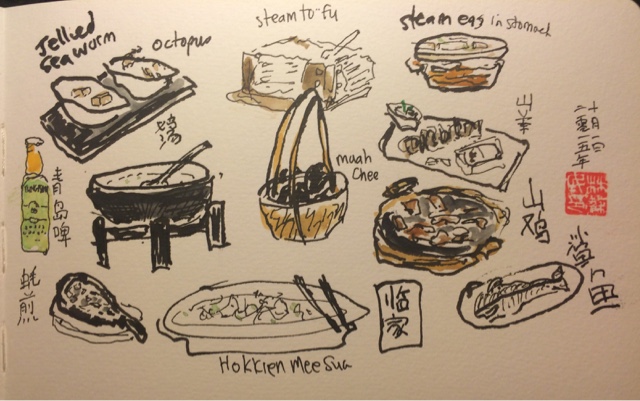 Jellied
sea worm
octopus
steam to-fu
steam egg in stomach
muah
chee
山羊
青岛啤
山鸡
鲨鱼
蚝煎
临家
Hokkien mee sua